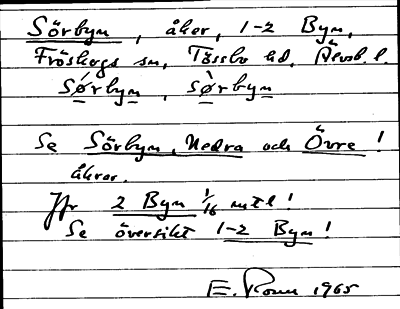 Sörbyn, åker, 1-2 Byn,
Fröskogs sn, Tössbo hd, Älvsb. l.
sørbyn, sørbyn
Se Sörbyn, Nedra och Övre!
åkrar.
Jfr 2 Byn 1/16 mtl!
Se översikt 1-2 Byn!
E. 1965